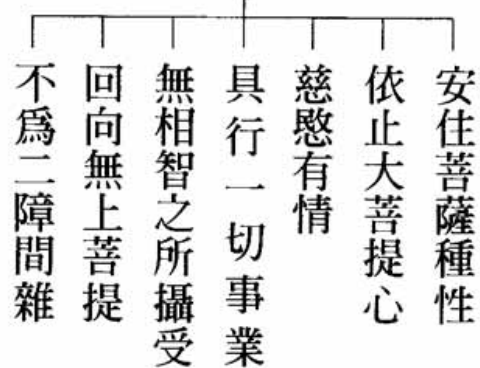 安住菩薩種性
依止大菩提心
慈愍有情
具行一切事業
無相智之所攝受
回向無上菩提
不爲二障間雜